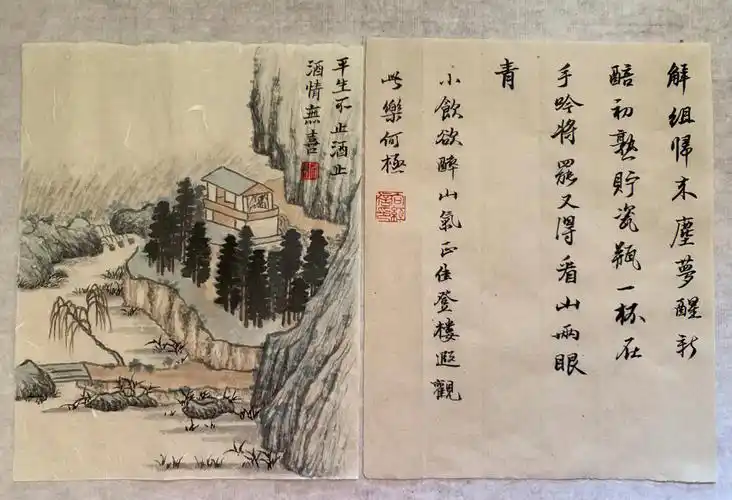 解組歸来塵夢醒新
醅初熟貯瓷瓶一杯在
手吟將罷又得看山兩眼
青
小飲欲醉山氣正佳登樓遐觀
此樂何極
平生不止酒止
酒情無喜